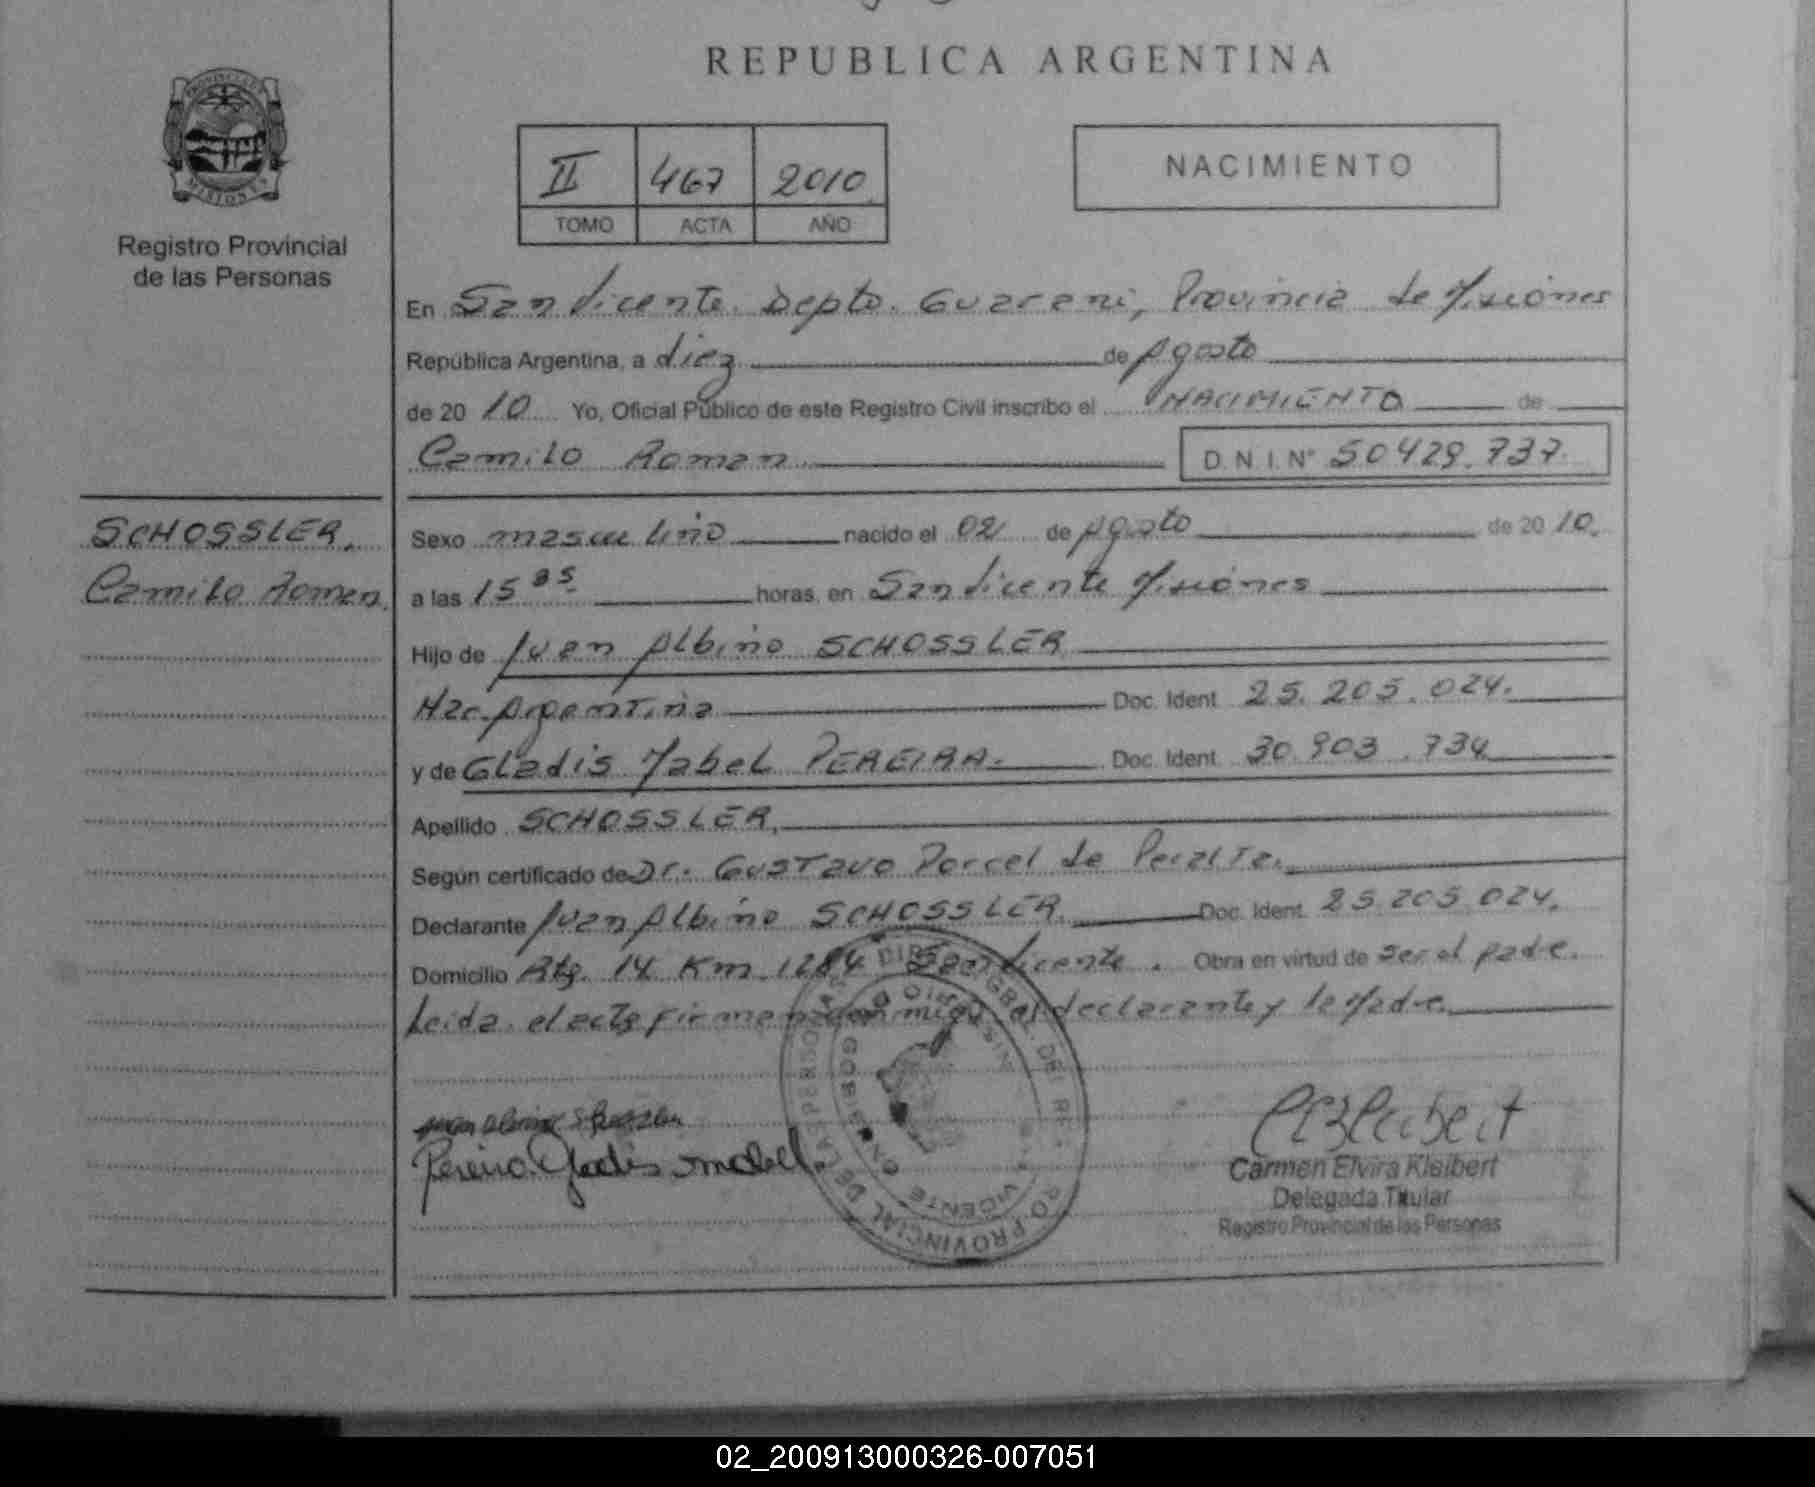 REPUBLICA ARGENTINA
II 467 2010
TOMO ACTA AÑO
NACIMIENTO
PROVINCIA DE
MISIONES
Registro Provincial
de las Personas
En San Vicente. Depto. Guarani, Provincia de Misiones
República Argentina, a diez de Agosto
de 20 10 Yo, Oficial Público de este Registro Civil inscribo el NACIMIENTO de
Camilo Roman D.N.I.Nº 50429.737.
SCHOSSLER,
Camilo Roman.
Sexo masculino nacido el 02 de Agosto de 20 10.
a las 15 05 horas, en San Vicente Misiones
Hijo de Juan Albino SCHOSSLER
Nac. Argentina Doc. Ident. 25.205.024.
y de Gladis Mabel PEREIRA. Doc. Ident. 30.903.734
Apellido SCHOSSLER,
Según certificado de Dr. Gustavo Porcel de Peralta.
Declarante Juan Albino SCHOSSLER Doc. Ident. 25.205.024.
Domicilio Rta. 14 Km 1284 San Vicente. Obra en virtud de ser el padre.
Leida el acta firman conmigo el declarante y la Madre.
Pereira Gladis Mabel
PROVINCIAL DE LAS PERSONAS
VICENTE
Carmen Elvira Kleibert
Delegada Titular
Registro Provincial de las Personas
02_200913000326-007051